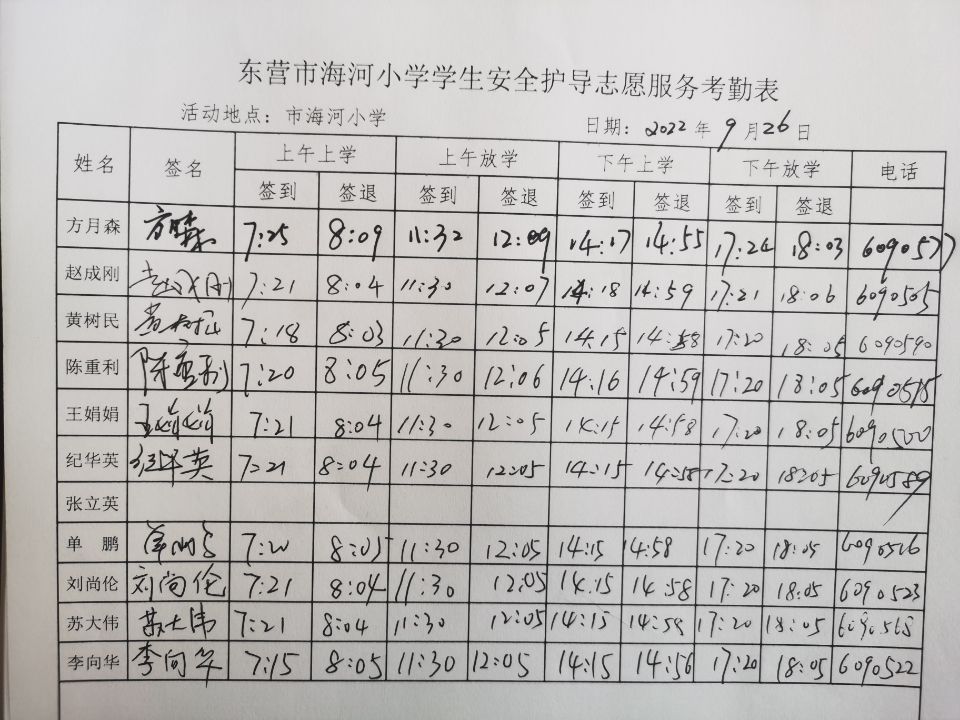 东营市海河小学学生安全护导志愿服务考勤表
活动地点：市海河小学 日期：2022年9月26日
姓名 签名 上午上学 上午放学 下午上学 下午放学 电话
签到 签退 签到 签退 签到 签退 签到 签退
方月森 7:25 8:09 11:32 12:09 14:17 14:55 17:24 18:03 6090577
赵成刚 赵成刚 7:21 8:04 11:30 12:07 14:18 14:59 17:21 18:06 6090505
黄树民 黄树民 7:18 8:03 11:30 12:05 14:15 14:58 17:20 18:05 6090590
陈重利 陈重利 7:20 8:05 11:30 12:06 14:16 14:59 17:20 18:05 6090515
王娟娟 王娟娟 7:21 8:04 11:30 12:05 14:15 14:58 17:20 18:05 6090500
纪华英 纪华英 7:21 8:04 11:30 12:05 14:15 14:58 17:20 18:05 6090589
张立英
单鹏 7:20 8:05 11:30 12:05 14:15 14:58 17:20 18:05 6090506
刘尚伦 刘尚伦 7:21 8:04 11:30 12:05 14:15 14:58 17:20 18:05 6090523
苏大伟 苏大伟 7:21 8:04 11:30 12:05 14:15 14:59 17:20 18:05 6090568
李向华 李向华 7:15 8:05 11:30 12:05 14:15 14:56 17:20 18:05 6090522